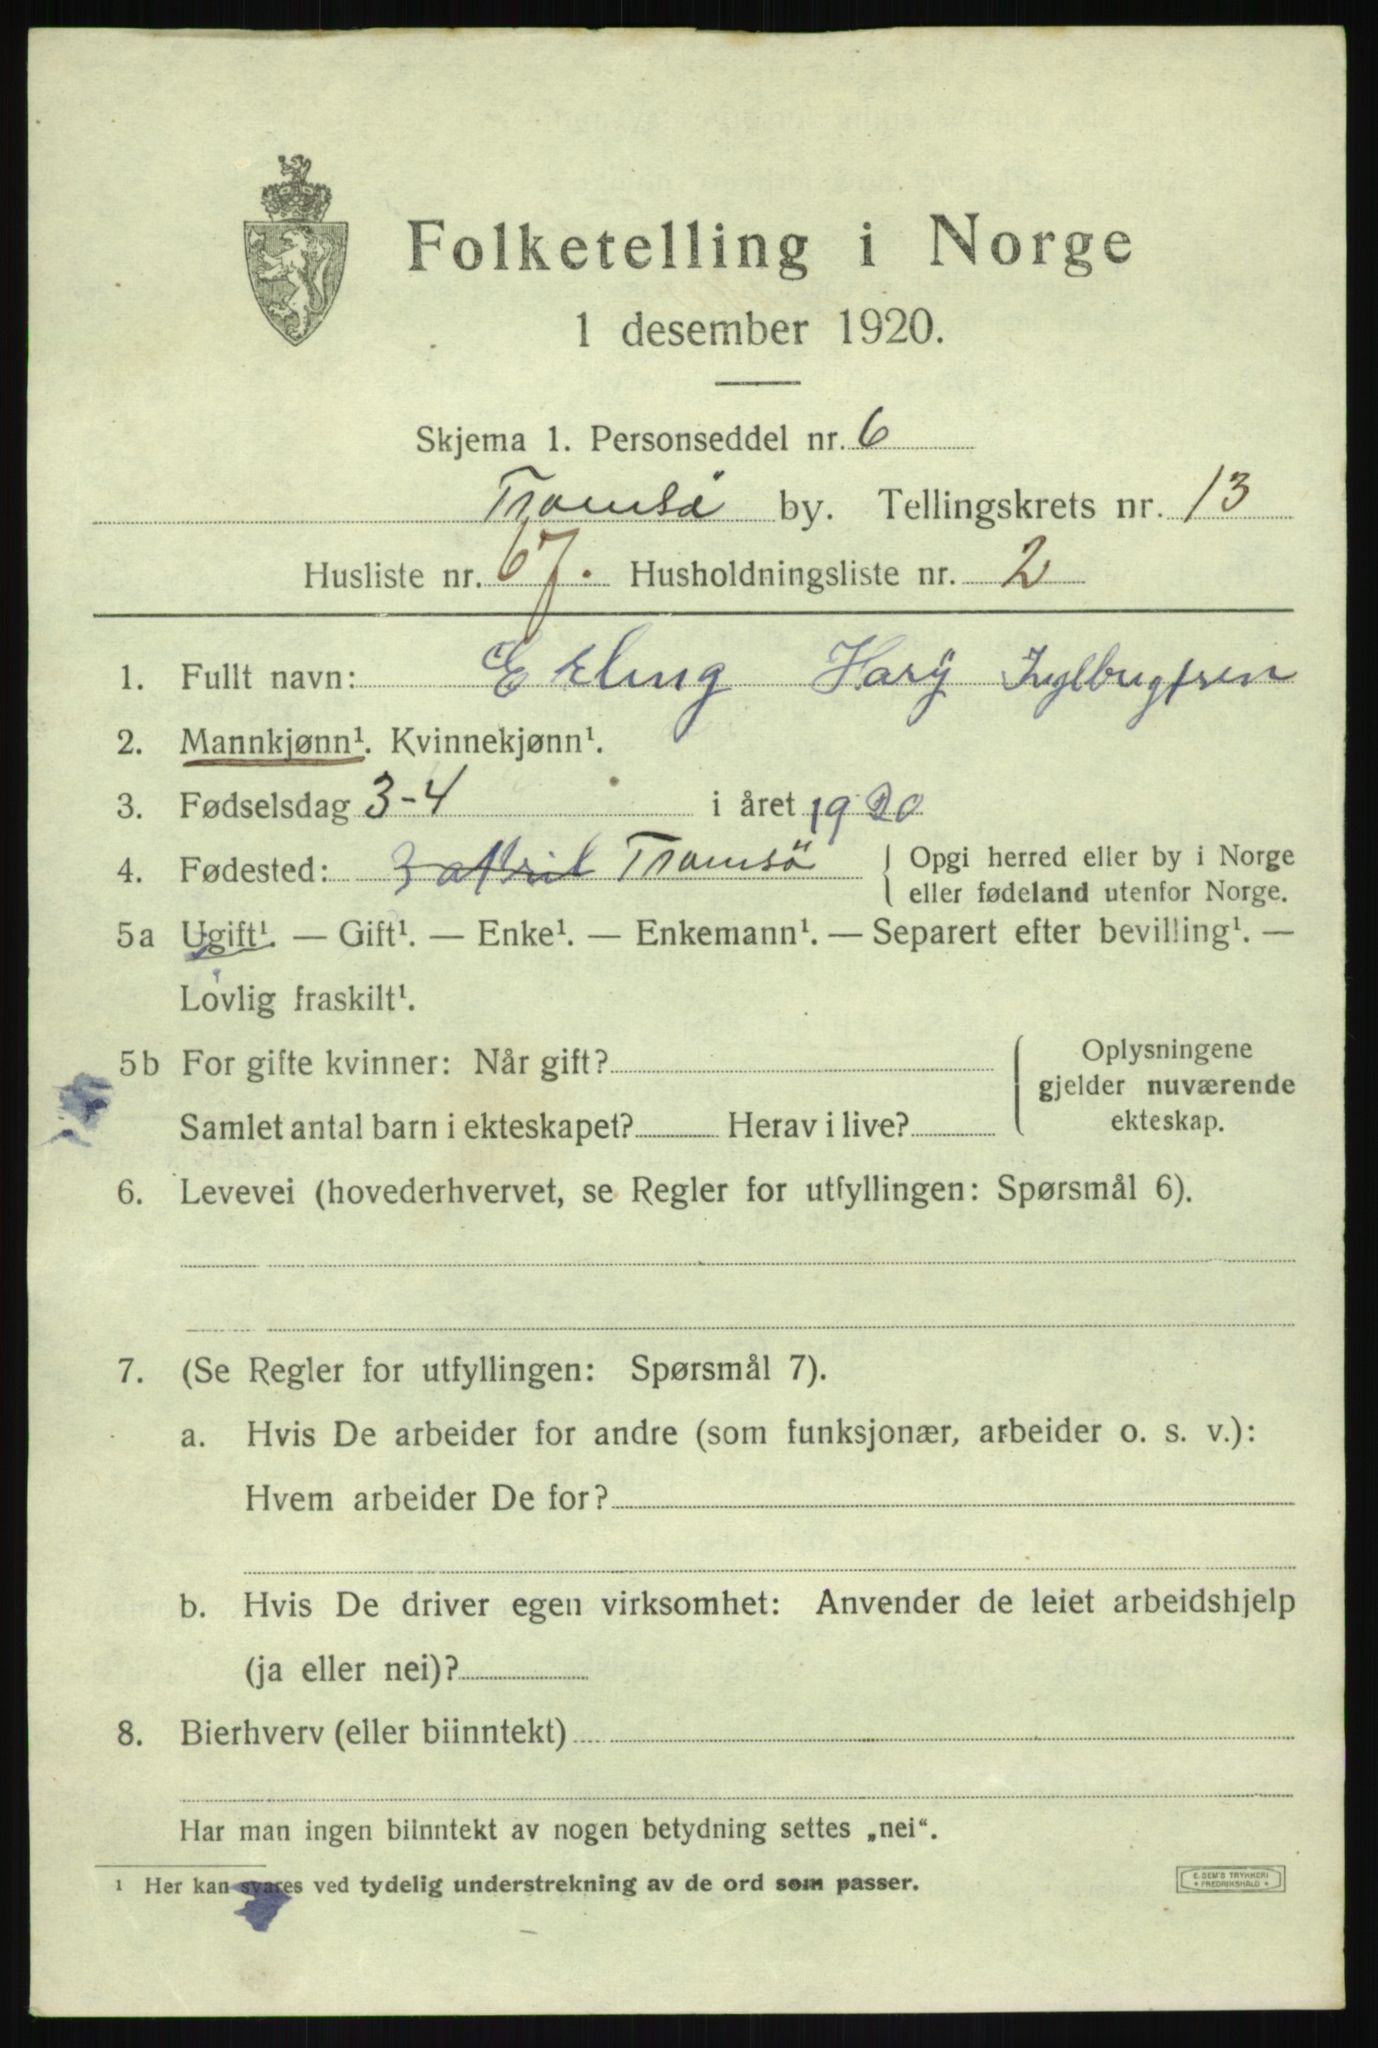 Folketelling i Norge
1 desember 1920.
Skjema 1. Personseddel nr. 6
Tromsö by. Tellingskrets nr. 13
Husliste nr. 67. Husholdningsliste nr. 2
1. Fullt navn: Erling Harÿ
2. Mannkjønn¹. Kvinnekjønn¹.
3. Fødselsdag 3-4 i året 1920
4. Fødested: 3 april Tromsö { Opgi herred eller by i Norge
eller fødeland utenfor Norge.
5a Ugift¹. — Gift¹. — Enke¹. — Enkemann¹. — Separert efter bevilling¹. —
Lovlig fraskilt¹.
5b For gifte kvinner: Når gift? { Oplysningene
gjelder nuværende
Samlet antal barn i ekteskapet? Herav i live? ekteskap.
6. Levevei (hovederhvervet, se Regler for utfyllingen: Spørsmål 6).
7. (Se Regler for utfyllingen: Spørsmål 7).
a. Hvis De arbeider for andre (som funksjonær, arbeider o. s. v.):
Hvem arbeider De for?
b. Hvis De driver egen virksomhet: Anvender de leiet arbeidshjelp
(ja eller nei)?
8. Bierhverv (eller biinntekt)
Har man ingen biinntekt av nogen betydning settes „nei“.
¹ Her kan svares ved tydelig understrekning av de ord som passer.
E. SEM'S TRYKKERI
* FREDRIKSHALD *